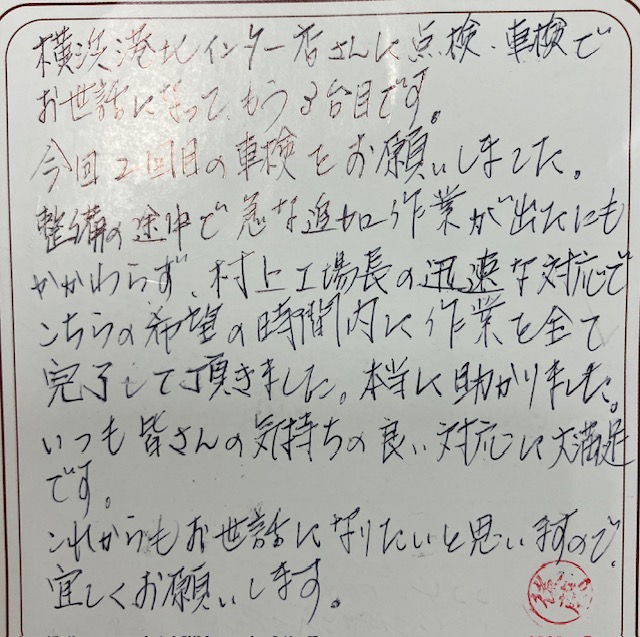 横浜港北インター店さんに点検、車検で
お世話になって、もう3台目です。
今回2回目の車検をお願いしました。
整備の途中で急な追加作業が出たにも
かかわらず、村上工場長の迅速な対応で
こちらの希望の時間内に作業を全て
完了して頂きました。本当に助かりました。
いつも皆さんの気持ちの良い対応に大満足
です。
これからもお世話になりたいと思いますので、
宜しくお願いします。